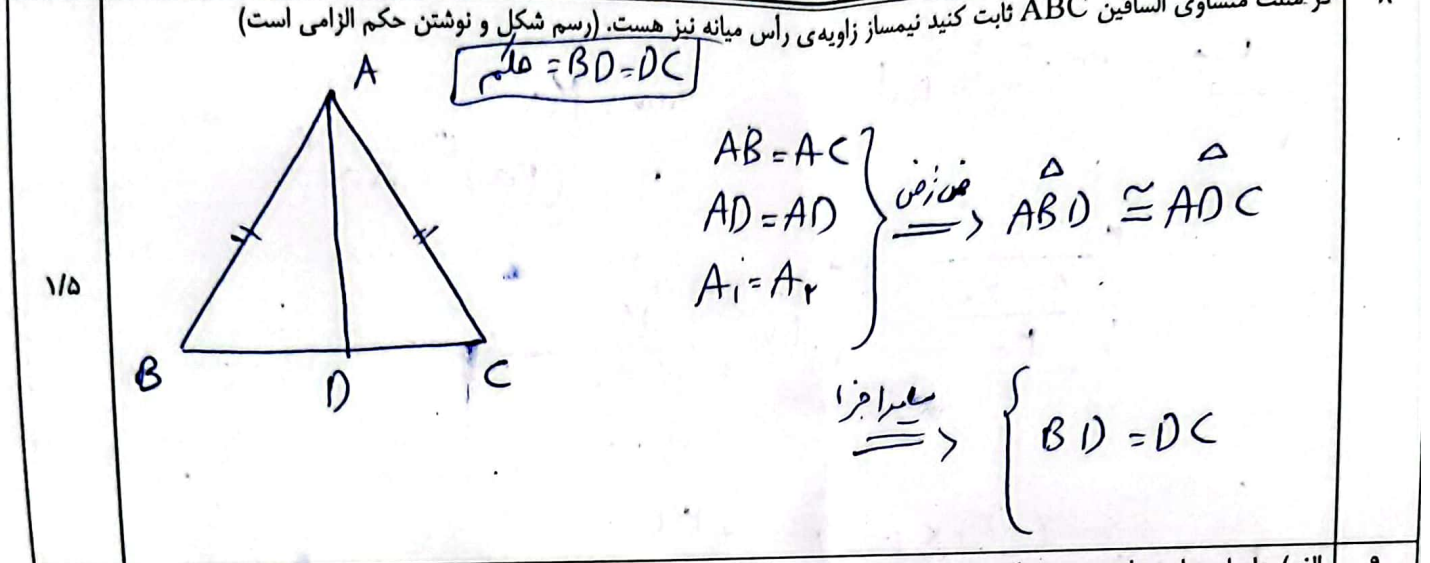 در مثلث متساوی الساقین ABC ثابت کنید نیمساز زاویه‌ی رأس میانه نیز هست. (رسم شکل و نوشتن حکم الزامی است)
حکم = BD=DC
A
AB=AC
AD=AD
A₁=A₂
ض ز ض
ABD ≅ ADC
۱/۵
B
D
C
سایر اجزا
BD=DC
۹